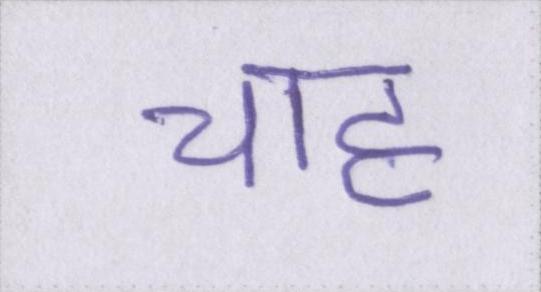 चाह